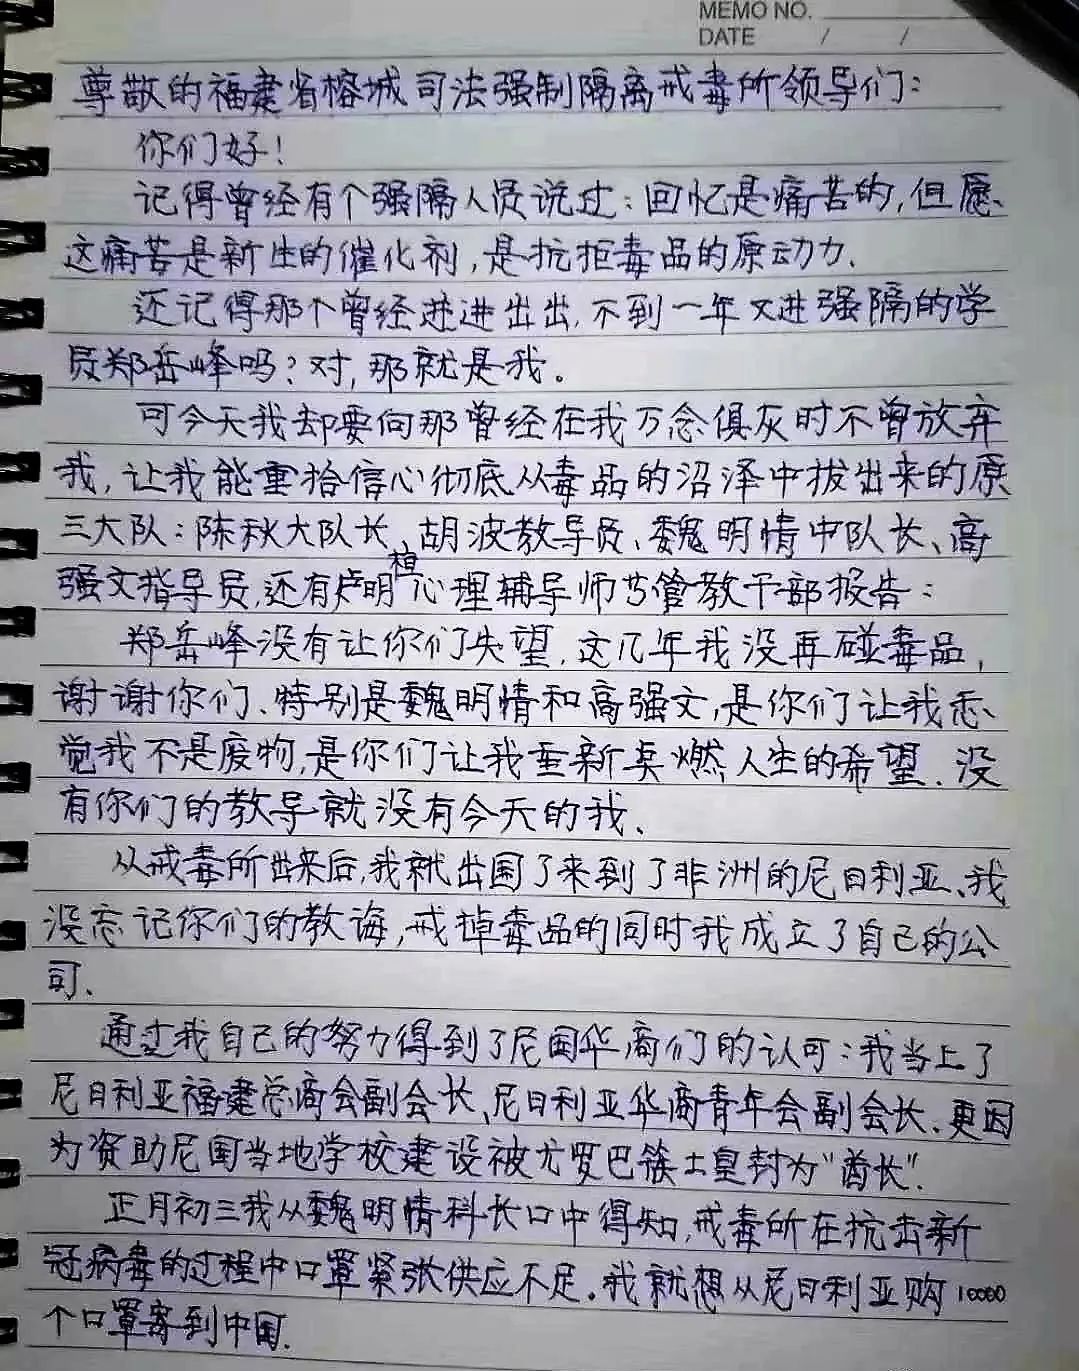 MEMO NO.
DATE / /
尊敬的福建省榕城司法强制隔离戒毒所领导们：
你们好！
记得曾经有个强隔人员说过：回忆是痛苦的，但愿
这痛苦是新生的催化剂，是抗拒毒品的原动力.
还记得那个曾经进进出出，不到一年又进强隔的学
员郑岳峰吗？对，那就是我。
可今天我却要向那曾经在我万念俱灰时不曾放弃
我，让我能重拾信心彻底从毒品的沼泽中拔出来的原
三大队：陈秋大队长、胡波教导员、魏明情中队长、高
强文指导员，还有卢明想心理辅导师等管教干部报告：
郑岳峰没有让你们失望，这几年我没再碰毒品，
谢谢你们、特别是魏明情和高强文，是你们让我
觉我不是废物，是你们让我重新点燃人生的希望、没
有你们的教导就没有今天的我、
从戒毒所出来后，我就出国了来到了非洲的尼日利亚、我
没忘记你们的教诲，戒掉毒品的同时我成立了自己的公
司、
通过我自己的努力得到了尼国华商们的认可：我当上了
尼日利亚福建总商会副会长、尼日利亚华商青年会副会长、更因
为资助尼国当地学校建设被尤罗巴族土皇封为“酋长”.
正月初三我从魏明情科长口中得知，戒毒所在抗击新
冠病毒的过程中口罩紧张供应不足。我就想从尼日利亚购10000
个口罩寄到中国.